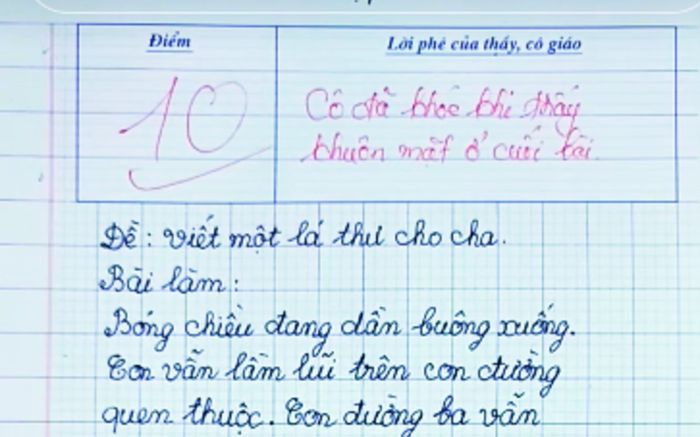 Điểm
Lời phê của thầy, cô giáo
10
Cô đã khóc khi thấy
khuôn mặt ở cuối bài.
Đề: Viết một lá thư cho cha.
Bài làm:
Bóng chiều đang dần buông xuống.
Con vẫn lầm lũi trên con đường
quen thuộc. Con đường ba vẫn